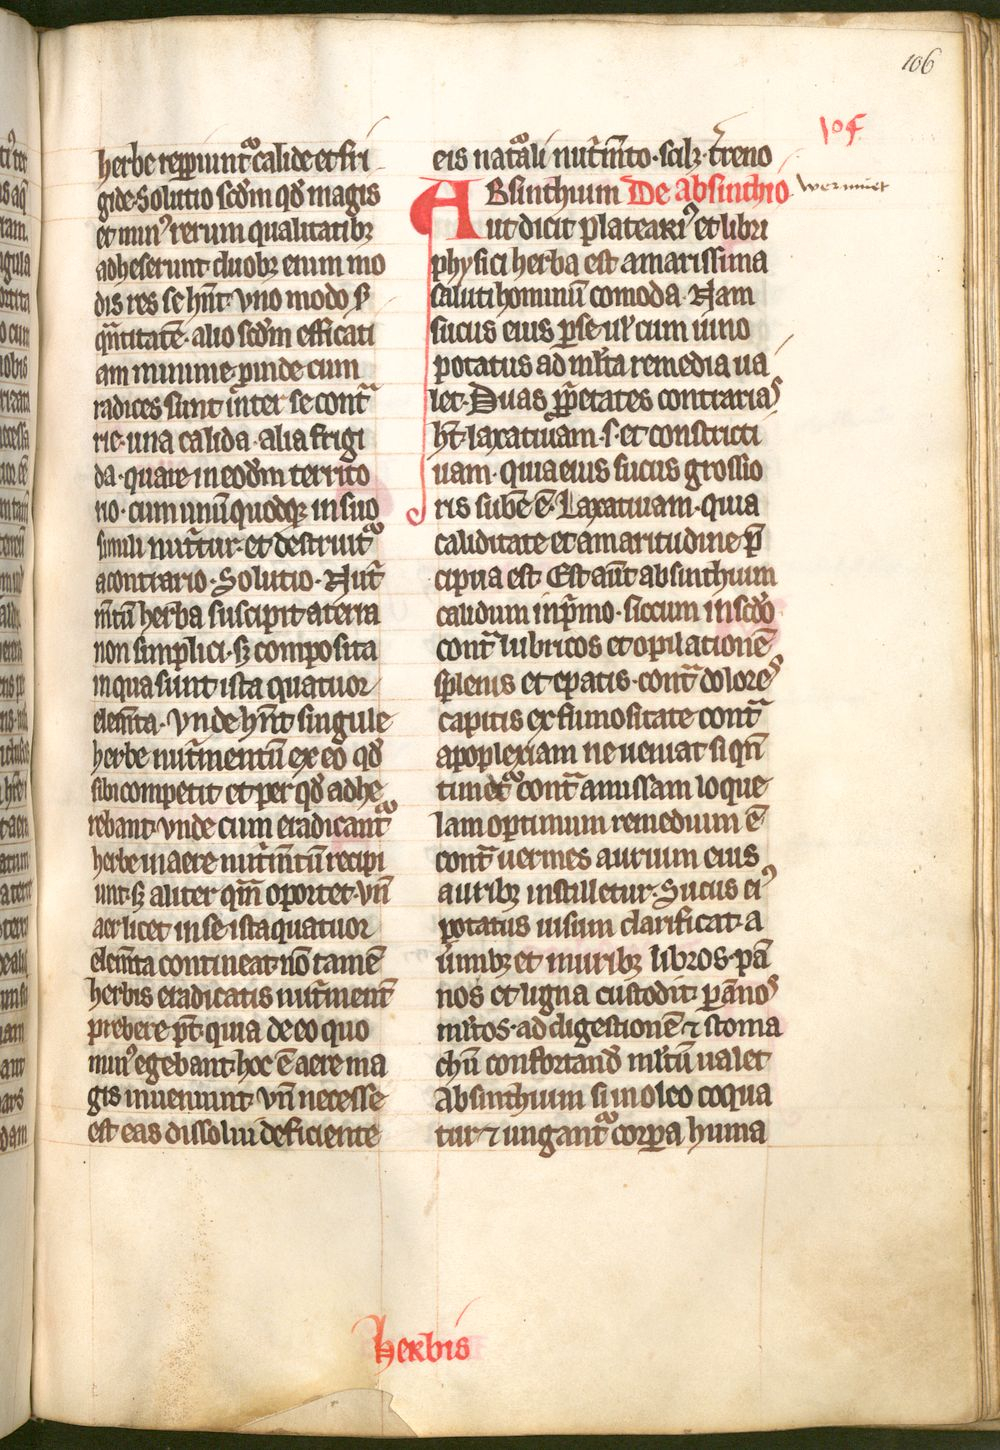 106
104
herbe reꝑiunt᷑ calide et fri
gide. Solutio scd̄m qd̄ magis
et min⁹ rerum qualitatibꝫ
adheserunt duobꝫ enim mo
dis res se hn̄t. vno modo ẜ
qn̄titatē. alio scd̄m efficati
am minime ꝓinde cum
radices sunt int̄ se cont̄
rie. una calida. alia frigi
da. quare in eod̄m territo
rio. cum unū quodqꝫ in suo
simili nut̄tur. et destruit᷑
a contrario. Solutio. Nut̄
mn̄tū herba suscipit a terra
non simplici. sꝫ composita
in qua sunt ista quatuor
elemn̄ta. vnde hn̄t singule
herbe nut̄mentū ex eo qd̄
sibi competit et per qd̄ adhe
rebant. vnde cum eradicant᷑
herbe in aere nut̄mn̄tū recipi
unt. sꝫ aliter qm̄ oportet. vn̄
aer licet in se ista quatuor
elemn̄ta contineat. nō tamē
herbis eradicatis nut̄ment̄
prebere pt̄. quia de eo quo
min⁹ egebant. hoc ē aere ma
gis inueniunt. vn̄ necesse
est eas dissolui deficiente
eis nat᷑ali nut̄imn̄to. scilꝫ t̄reno
ABsinthium De absinthio
wermuet
Vt dicit platearị⁹ et libri
physici herba est amarissima
saluti hominū comoda. Nam
sucus eius ꝑ se ul̛ cum uino
potatus ad ml̛ta remedia ua
let. Duas ꝓp̄etates contrarias
ht̄. laxatiuam. s. et constricti
uam. quia eius sucus grossio
ris sub̄e ē. Laxatiuam. quia
caliditate et amaritudine p̄
cipua est. Est aūt absinthium
calidum in p̄mo. siccum in scd̄o
cont̄ lubricos et opilationē
splenis et epatis. cont̄ dolores
capitis ex fumositate. cont̄
apoplexiam ne ueniat si qn̄
timet᷑. cont̄ amissam loque
lam optimum remedium ē
cont̄ uermes aurium eius
auribꝫ instilletur. Sucus ei⁹
potatus uisum clarificat. a
u̅mibꝫ et muribꝫ libros. pā
nos et ligna custodit. ꝑ ānos
ml̛tos. ad digestionē ⁊ stoma
chū confortand̄ ml̛tū ualet
Absinthium si in oleo coqua
tur ⁊ ungant᷑ corꝑa huma
herbis